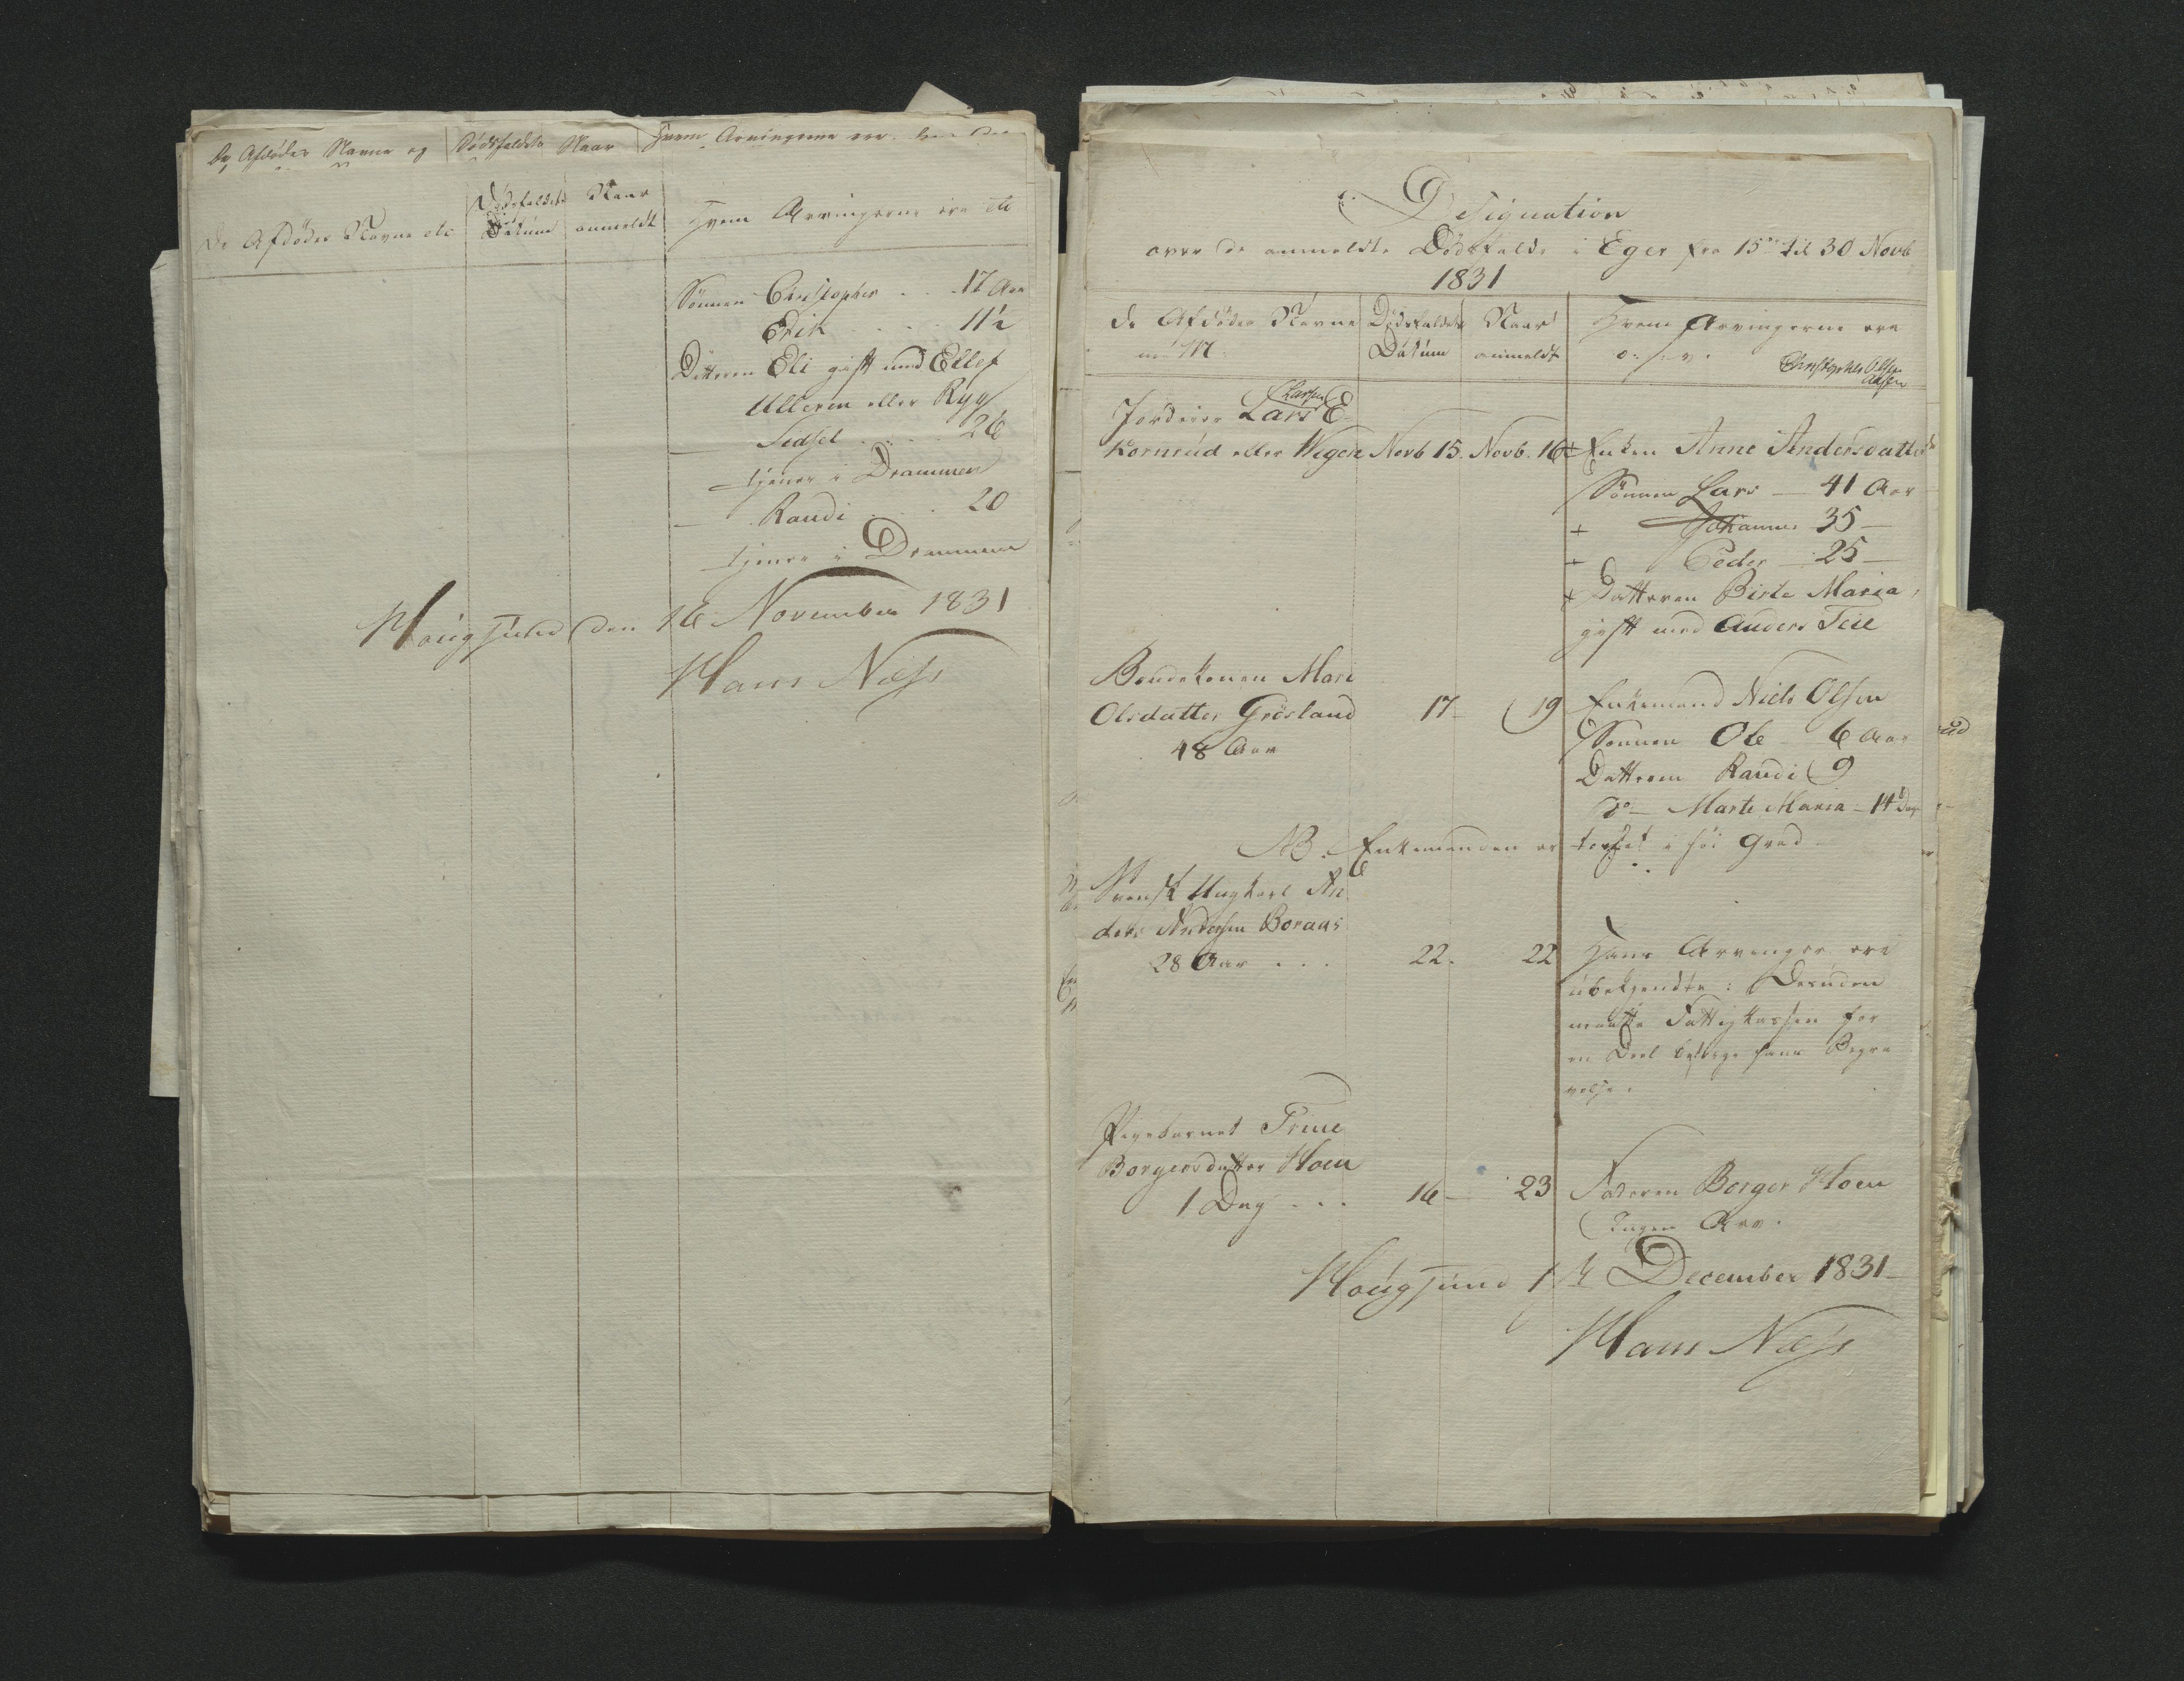 De Afdødes Navne og Dødsfaldets Naar Hvem Arvingerne ere
De Afdødes Navne etc Dødsfaldets Datum Naar anmeldt Hvem Arvingerne ere etc
Sønnen Christopher . . 17 Aar
Erik . . . 11½
Datteren Eli gift med Ellef
Ulleren eller Ryg
— Sidsel . . . . 26
tjener i Drammen
— Randi . . . 20
tjener i Drammen
Hougsund den 16 November 1831
Hans Næss
Designation
over de anmeldte Dødsfald i Eger fra 15de til 30 Novb
1831
De Afdødes Navne Dødsfaldets Naar Hvem Arvingerne ere
m: M: Datum anmeldt o. s. v.
Christopher Olsen
Larsen
Jordeier Lars E
Kornrud eller Wigen Novb 15. Novb. 16 Enken Anne Andersdatter
Sønnen Lars — 41 Aar
+ Johannes 35 —
+ Peder — 25 —
+ Datteren Birte Maria,
gift med Anders Teie
Bondekonen Mari
Olsdatter Grøsland 17 19 Enkemand Niels Olsen
48 Aar Sønnen Ole — 6 Aar
Datteren Randi 9
Do — Marte Maria — 14 Dage
NB. Enkemanden er i høi Grad
Svensk Ungkarl An
ders Andersen Boraas
28 Aar . . . 22. 22 Hans Arvinger ere
ubekjendte: Desuden
maatte Fattigkassen for
en Deel besørge hans Begra
velse.
Pigebarnet Trine
Borgersdatter Hoen
1 Dag . . . 16 — 23 Faderen Borger Hoen
Ingen Arv.
Hougsund 1ste December 1831
Hans Næss